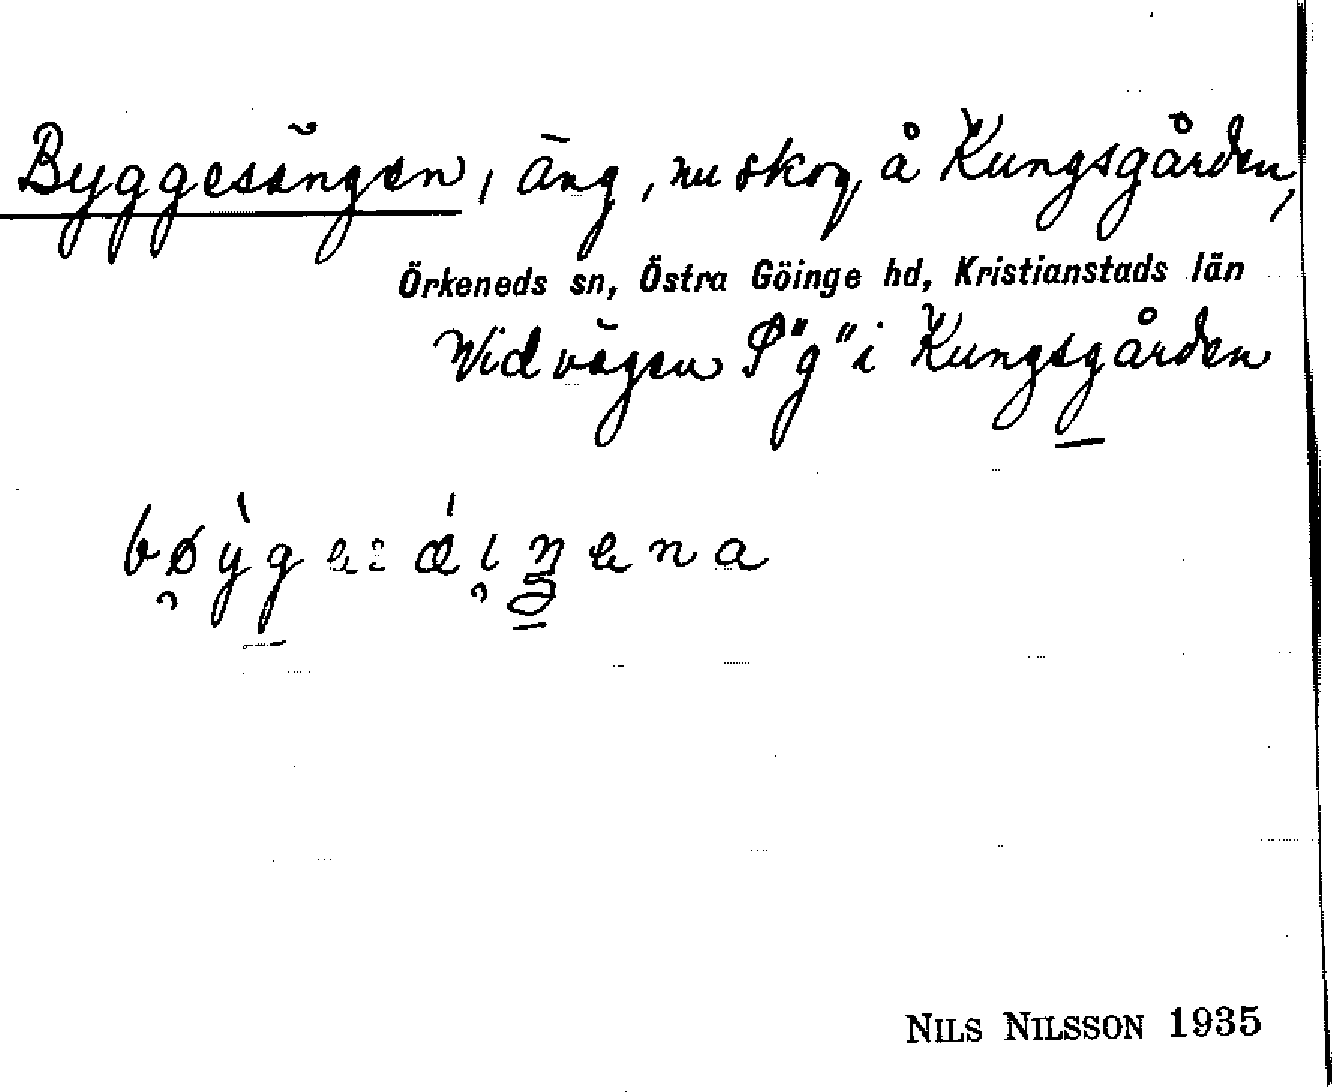 Byggesängen, äng, nu skog, å Kungsgården,
Örkeneds sn, Östra Göinge hd, Kristianstads län
Vid vägen P "g" i Kungsgården
NILS NILSSON 1935